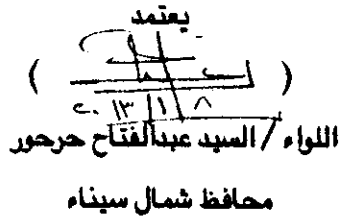 يعتمد
( )
٢٠١٣/١/٨
اللواء / السيد عبدالفتاح حرحور
محافظ شمال سيناء